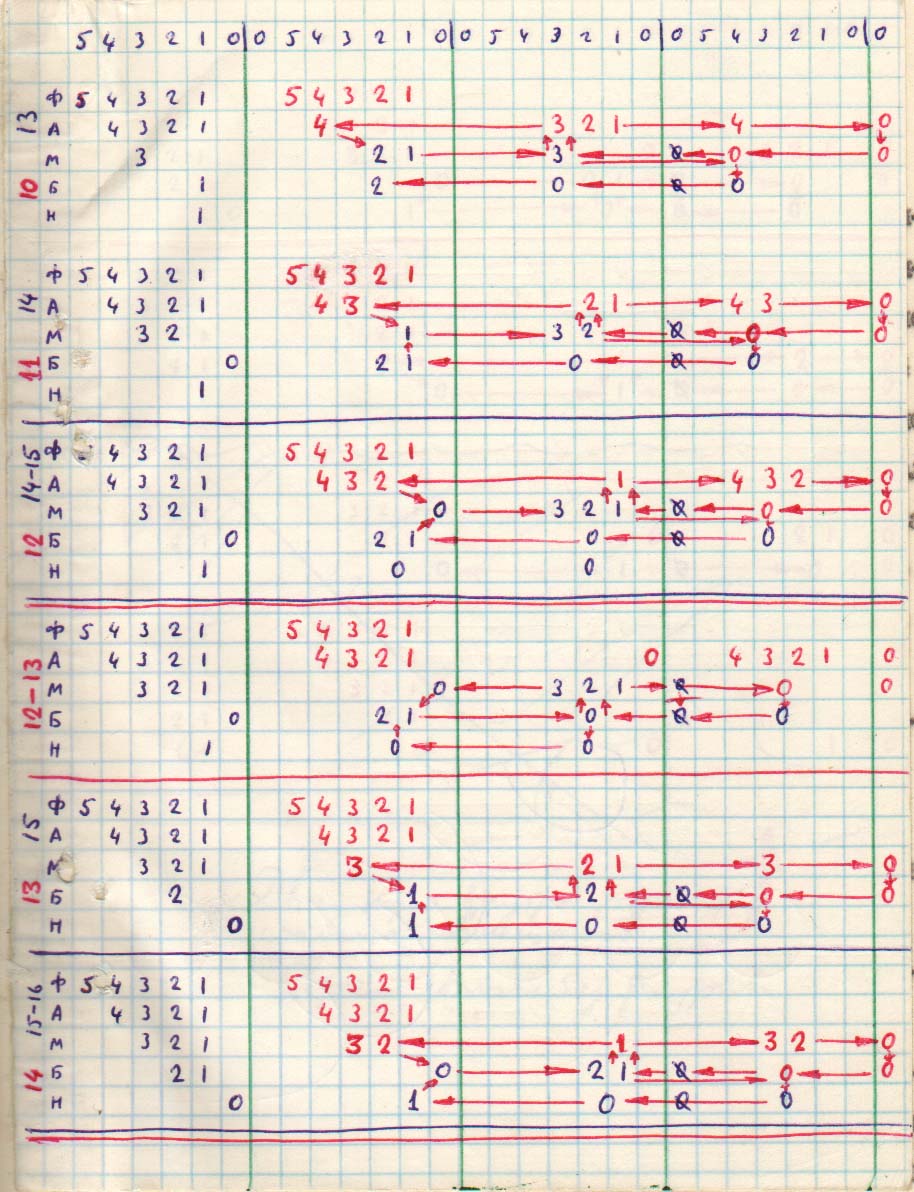 5 4 3 2 1 0 0 5 4 3 2 1 0 0 5 4 3 2 1 0 0 5 4 3 2 1 0 0
13
Ф 5 4 3 2 1 5 4 3 2 1
А 4 3 2 1 4 3 2 1 4 0
М 3 2 1 3 0 0 0
10
Б 1 2 0 0 0
Н 1
14
Ф 5 4 3 2 1 5 4 3 2 1
А 4 3 2 1 4 3 2 1 4 3 0
М 3 2 1 3 2 0 0 0
11
Б 0 2 1 0 0 0
Н 1
14-15
Ф 4 3 2 1 5 4 3 2 1
А 4 3 2 1 4 3 2 1 4 3 2 0
М 3 2 1 0 3 2 1 0 0 0
12
Б 0 2 1 0 0 0
Н 1 0 0
12-13
Ф 5 4 3 2 1 5 4 3 2 1
А 4 3 2 1 4 3 2 1 0 4 3 2 1 0
М 3 2 1 0 3 2 1 0 0 0
Б 0 2 1 0 0 0
Н 1 0 0
15
Ф 5 4 3 2 1 5 4 3 2 1
А 4 3 2 1 4 3 2 1
М 3 2 1 3 2 1 3 0
13
Б 2 1 2 0 0 0
Н 0 1 0 0 0
15-16
Ф 5 4 3 2 1 5 4 3 2 1
А 4 3 2 1 4 3 2 1
М 3 2 1 3 2 1 3 2 0
14
Б 2 1 0 2 1 0 0 0
Н 0 1 0 0 0